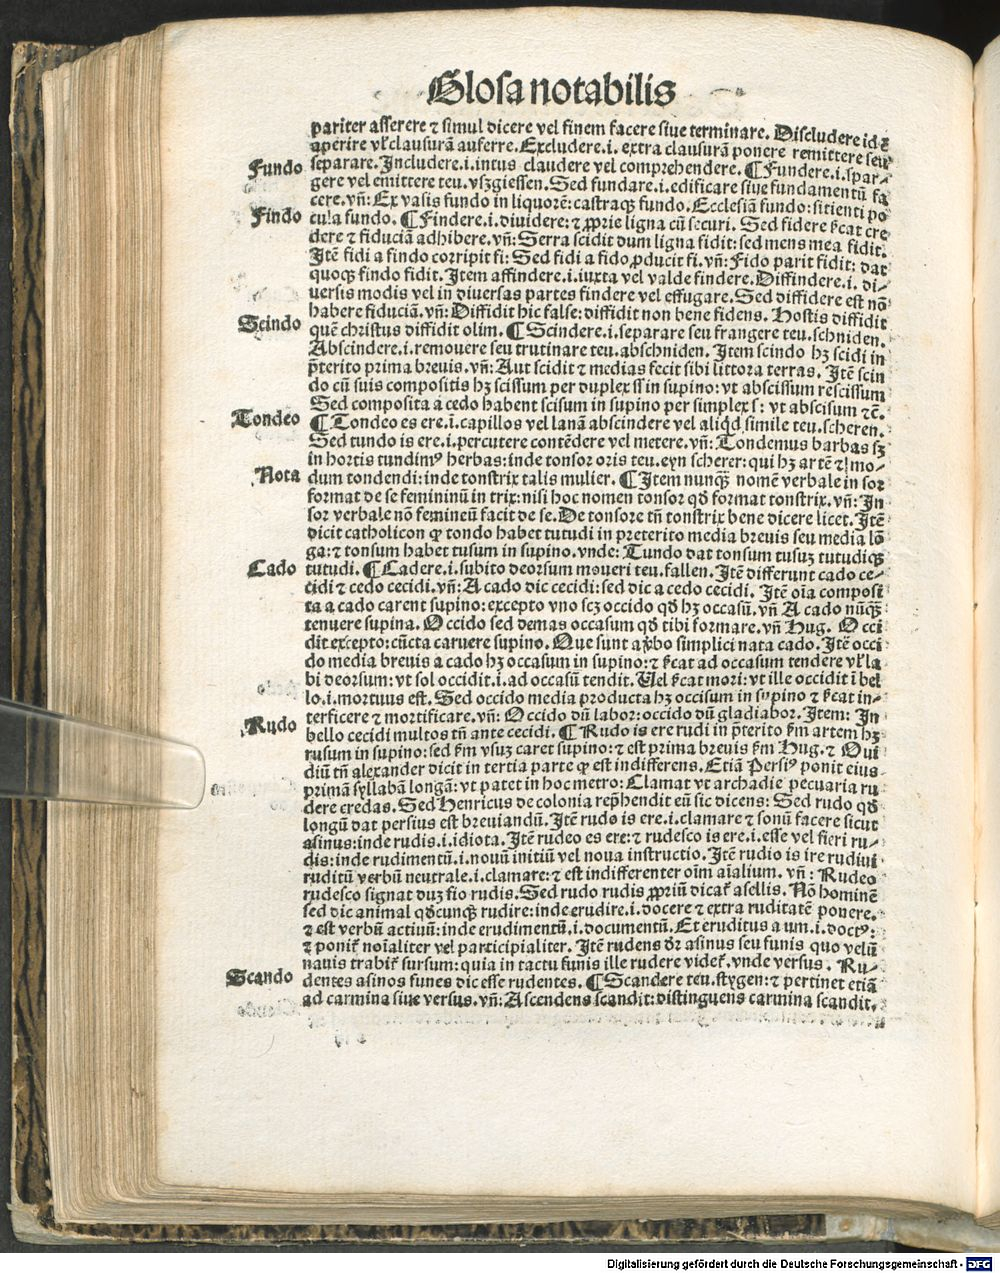 Glosa notabilis
pariter asserere ⁊ simul dicere vel finem facere siue terminare. Discludere id ē
aperire vl' clausurā auferre. Excludere .i. extra clausurā ponere remittere seu
Fundo separare. Includere .i. intus claudere vel comprehendere. ¶ Fundere .i. spar⸗
gere vel emittere teu. vszgiessen. Sed fundare .i. edificare siue fundamentū fa
cere. vñ: Ex vasis fundo in liquorē: castraqꝫ fundo. Ecclesiā fundo: sitienti po
Findo cula fundo. ¶ Findere .i. diuidere: ⁊ ꝓprie ligna cū securi. Sed fidere ſ̄cat cre
dere ⁊ fiduciā adhibere. vñ: Serra scidit dum ligna fidit: sed mens mea fidit.
Itē fidi a findo corripit fi: Sed fidi a fido ꝓducit fi. vñ: Fido parit fidit: dat
quoqꝫ findo fidit. Item affindere .i. iuxta vel valde findere. Diffindere .i. di⸗
uersis modis vel in diuersas partes findere vel effugare. Sed diffidere est nō
habere fiduciā. vñ: Diffidit hic false: diffidit non bene fidens. Hostis diffidit
Scindo quē christus diffidit olim. ¶ Scindere .i. separare seu frangere teu. schniden.
Abscindere .i. remouere seu trutinare teu. abschniden. Item scindo hꝫ scidi in
p̄terito prima breuis. vñ: Aut scidit ⁊ medias fecit sibi littora terras. Itē scin
do cū suis compositis hꝫ scissum per duplex ss in supino: vt abscissum rescissum
Sed composita a cedo habent scisum in supino per simplex s: vt abscisum ⁊c̄.
Tondeo ¶ Tondeo es ere .i. capillos vel lanā abscindere vel aliqd̄ simile teu. scheren.
Sed tundo is ere .i. percutere contēdere vel metere. vñ: Tondemus barbas sꝫ
in hortis tundimꝰ herbas: inde tonsor oris teu. eyn scherer: qui hꝫ artē ⁊ mo⸗
Nota dum tondendi: inde tonstrix talis mulier. ¶ Item nunqꝫ̄ nomē verbale in sor
format de se femininū in trix: nisi hoc nomen tonsor qd̄ format tonstrix. vñ: In
sor verbale nō femineū facit de se. De tonsore tñ tonstrix bene dicere licet. Itē
dicit catholicon ꝙ tondo habet tutudi in preterito media breuis seu media lō
ga: ⁊ tonsum habet tusum in supino. vnde: Tundo dat tonsum tusuꝫ tutudiqꝫ
Cado tutudi. ¶ Cadere .i. subito deorsum moueri teu. fallen. Itē differunt cado ce⸗
cidi ⁊ cedo cecidi. vñ: A cado dic cecidi: sed dic a cedo cecidi. Itē oīa composi
ta a cado carent supino: excepto vno scꝫ occido qd̄ hꝫ occasū. vñ A cado nūqꝫ̄
tenuere supina. Occido sed demas occasum qd̄ tibi formare. vñ Hug. Occi
dit excepto: cūcta caruere supino. Que sunt a ꝟbo simplici nata cado. Itē occi
do media breuis a cado hꝫ occasum in supino: ⁊ ſ̄cat ad occasum tendere vl' la
bi deorsum: vt sol occidit .i. ad occasū tendit. Uel ſ̄cat mori: vt ille occidit ī bel
lo .i. mortuus est. Sed occido media producta hꝫ occisum in supino ⁊ ſ̄cat in⸗
Rudo terficere ⁊ mortificare. vñ: Occido dū labor: occido dū gladiabor. Item: In
bello cecidi multos tñ ante cecidi. ¶ Rudo is ere rudi in p̄terito ſm̄ artem hꝫ
rusum in supino: sed ſm̄ vsuꝫ caret supino: ⁊ est prima breuis ſm̄ Hug. ⁊ Oui
diū tñ alexander dicit in tertia parte ꝙ est indifferens. Etiā Persiꝰ ponit eius
primā syllabā longā: vt patet in hoc metro: Clamat vt archadie pecuaria ru
dere credas. Sed Henricus de colonia rep̄hendit eū sic dicens: Sed rudo qd̄
longū dat persius est breuiandū. Itē rudo is ere .i. clamare ⁊ sonū facere sicut
asinus: inde rudis .i. idiota. Itē rudeo es ere: ⁊ rudesco is ere .i. esse vel fieri ru⸗
dis: inde rudimentū .i. nouū initiū vel noua instructio. Itē rudio is ire rudiui
ruditū verbū neutrale .i. clamare: ⁊ est indifferenter oīm aīalium. vñ: Rudeo
rudesco signat duꝫ fio rudis. Sed rudo rudis ꝓpriū dicat̄ asellis. Nō hominē
sed dic animal qd̄cunqꝫ rudire: inde erudire .i. docere ⁊ extra ruditatē ponere.
⁊ est verbū actiuū: inde erudimentū .i. documentū. Et eruditus a um .i. doctꝰ:
⁊ ponit̄ noīaliter vel participialiter. Itē rudens dr̄ asinus seu funis quo velū
nauis trahit̄ sursum: quia in tactu funis ille rudere videt̄. vnde versus. Ru⸗
Scando dentes asinos funes dic esse rudentes. ¶ Scandere teu. stygen: ⁊ pertinet etiā
ad carmina siue versus. vñ: Ascendens scandit: distinguens carmina scandit.
Digitalisierung gefördert durch die Deutsche Forschungsgemeinschaft - DFG